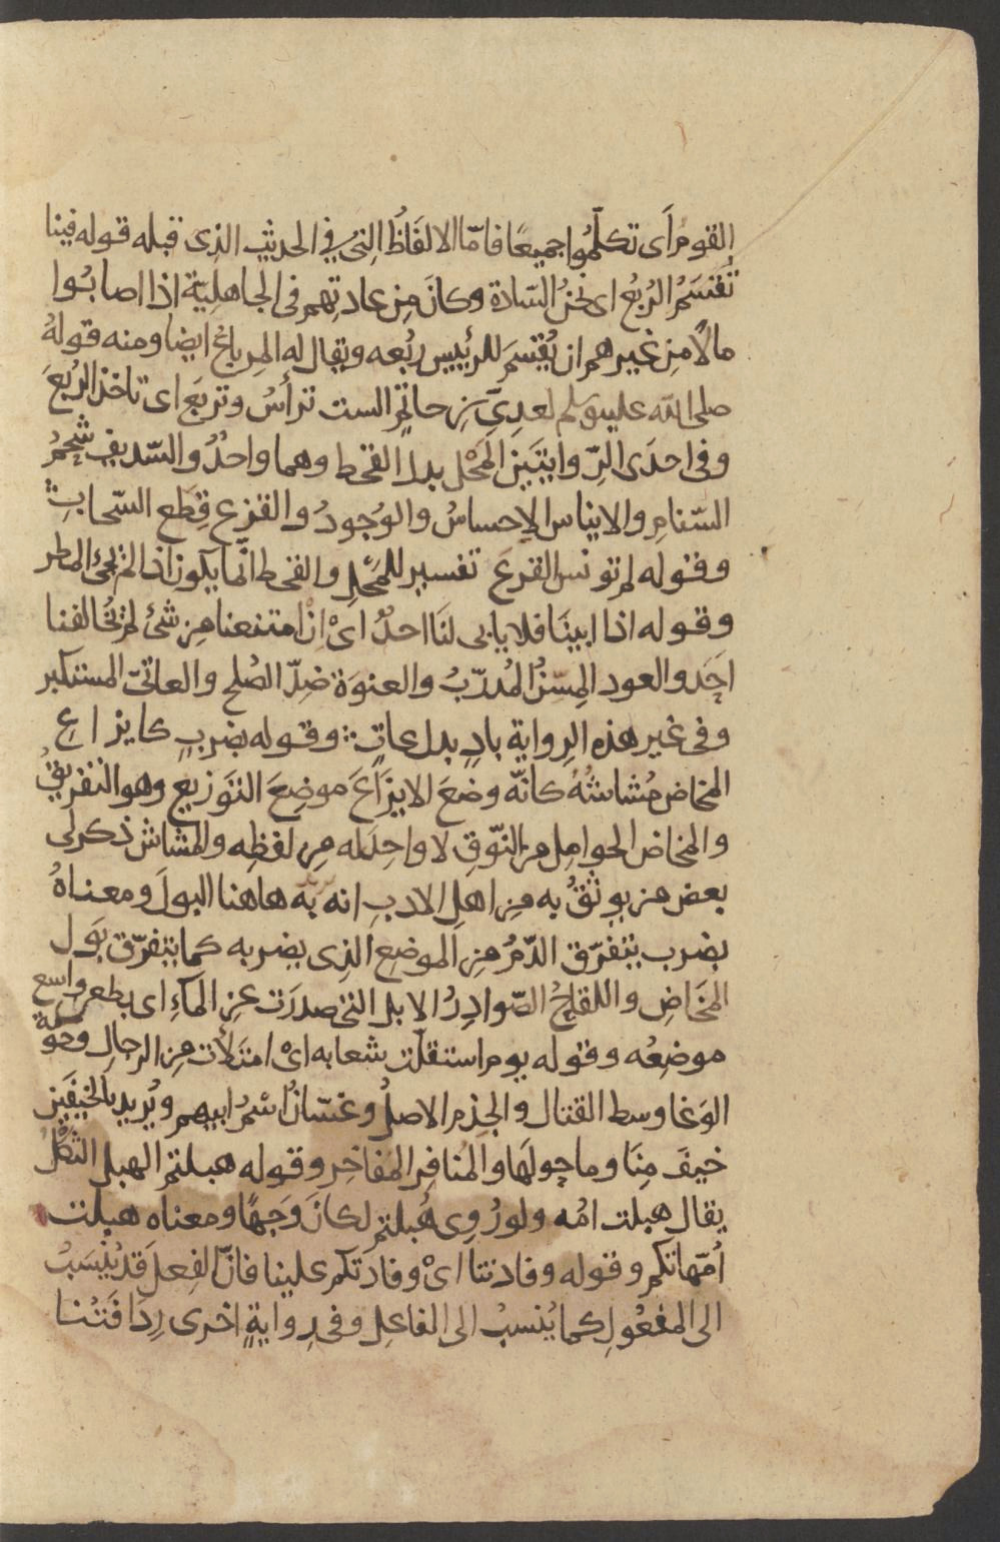 القوم أى تكلّموا جميعًا فامّا الالفَاظُ التِى في الحديثِ الذِى قبله قوله فينا
تُقتسَمُ الرُبُعُ اى نحنُ السّادة وكانَ مِن عادتِهم فى الجاهليّة اذا اصابُوا
مالًا مِن غيرهم ان يُقتسَمَ للرئيس ربُعه ويقال له المِرباعُ ايضا ومنه قولهُ
صلى الله عليه وسلم لعدِيّ بن حاتمٍ الست ترأسُ وتربَع اى تاخذ الربُعَ
وفى احدَى الرِّوايتَين المَحْل بدل القحط وهما واحدٌ والسّديف شحمُ
السّنامِ والايناس الإحساسُ والوُجودُ والقزع قِطَع السّحابِ
وقوله لم تونس القزعَ تفسير للمَحْلِ والقحط انّما يكون اذا لم يجئ المطر
وقوله اذا ابينَا فلا يابى لنَا احدٌ اىْ اِن امتنعنا مِن شئ لم يُخالفنا
احَد والعود المِسّنُ المُدرّبُ والعنوَة ضِدّ الصُلحِ والعاتى المستكبر
وفى غير هذه الرِواية بادٍ بدل عاتٍ وقوله بضربٍ كايزاعِ
المخاض مُشاشُهُ كانّه وضعَ الايزَاعَ موضِعَ التَوزيع وهو التفريقُ
والمخاض الحوامِل من النّوق لا واحِدَ له مِن لفظِه والمشاش ذكر لى
بعض من يوثقُ به مِن اهلِ الادبِ انه به هاهنا البولَ ومعناهُ
بضرب يتفرّق الدّمُ مِن الموضِع الذِى يضربه كما يتفرّق بَول
المخَاضِ واللقاحُ الصّوادِرُ الابل التى صدرَت عنِ المآءِ اى بطعنٍ واسع
موضِعُه وقوله يوم استقلّت شعابه اىْ امتلأت مِن الرجالِ وحَومة
الوَغا وسط القتال والجِذم الاصلُ وغسّانُ اسْمُ ابيهم ويُريد بالخيفَين
خيفَ مِنَا وما حولهَا والمُنافِر المُفاخِر وقوله هبلتم الهبل الثكْلُ
يقال هبلت امُه ولو رُوِى هُبلتم لكانَ وَجهًا ومعناه هبلت
اُمّهاتكم وقوله وفادتنا اىْ وفادتكم علينا فانّ الفِعلَ قد يُنسَبُ
الى المفعُولِ كما يُنسبُ الى الفاعلِ وفى رِوايةٍ اخرى رِدَافَتُنا